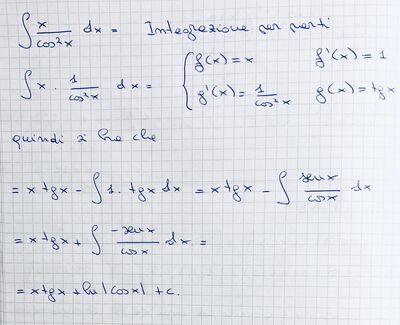 ∫ x/cos²x dx = Integrazione per parti
∫ x · 1/cos²x dx = { f(x) = x f'(x) = 1
g'(x) = 1/cos²x g(x) = tgx
quindi si ha che
= x tgx - ∫ 1 · tgx dx = x tgx - ∫ senx/cosx dx
= x tgx + ∫ -senx/cosx dx =
= x tgx + ln |cosx| + c.